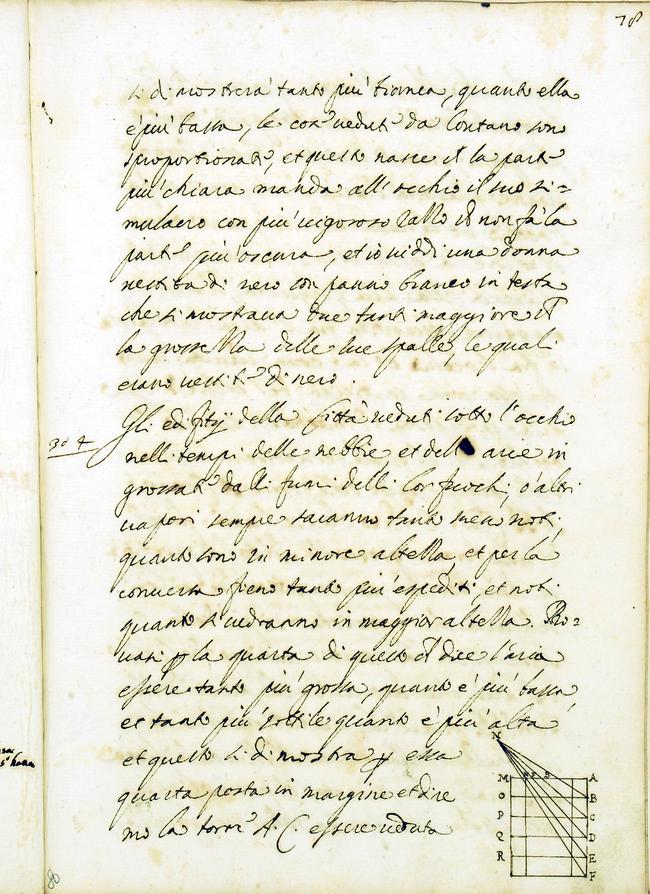 78
si dimostrera' tanto piu' bianca, quanto ella
e piu' bassa, le cose vedute da lontano sono
sproportionate, et questo nasce che la parte
piu' chiara manda all' occhio il suo si=
mulacro con piu' vigoroso razzo che non fa' la
parte piu' oscura, et io viddi una donna
vestita di nero con panno bianco in testa
che si mostraua due tanti maggiore che
la grossezza delle sue spalle, le quali
erano vestite di nero.
304
Gli edifitij della Citta' veduti sotto l'occhio
nelli tempi delle nebbie et dell arie in
grossate dalli fumi delli lor fuochi, o' altri
uapori sempre saranno tanto men noti,
quanto sono in minore altezza, et per la
conuersa fieno tanto piu' espediti, et noti
quanto si uedranno in maggior altezza. Pro=
uasi p la quarta di questo che dice l'aria
essere tanto piu' grossa, quanto e' piu' bassa
et tanto piu' sottile quanto e' piu' alta
et questo si dimostra p essa
quarta posta in margine et dire
mo la torre A. C. essere ueduta
N
M A
O B
P C
Q D
R E
F
80